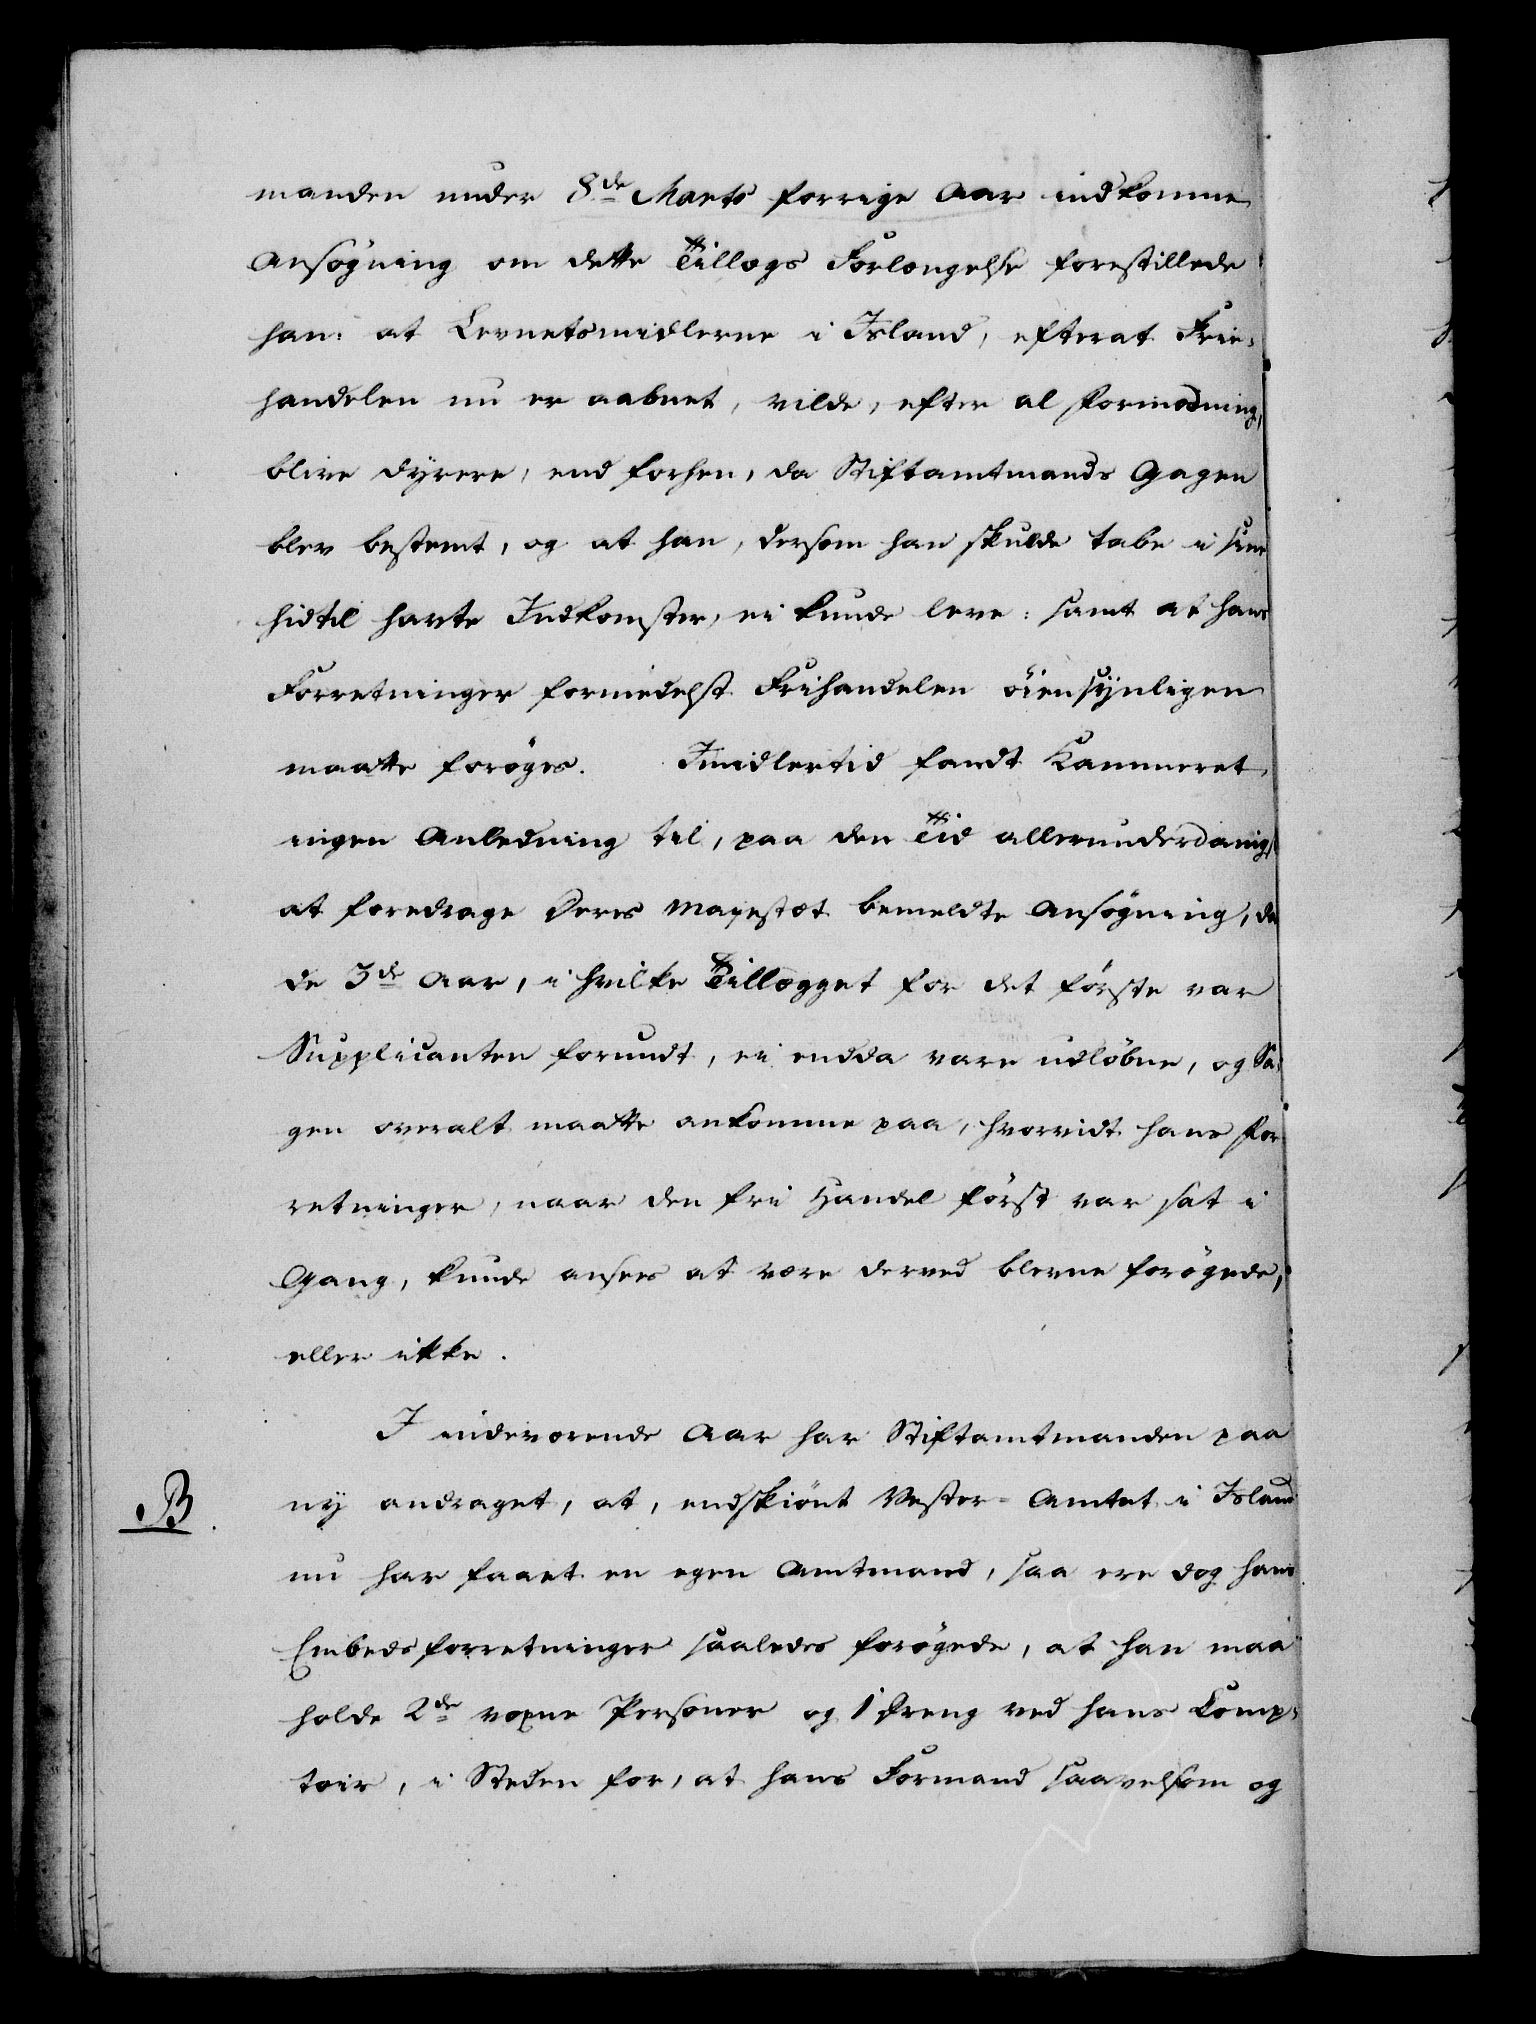 manden under 8de Marts forrige Aar indkomne
Ansøgning om dette Tillægs Forlængelse forestillede
han: at Levnetsmidlerne i Island, efterat Frie-
handelen nu er aabnet, vilde, efter al Formodning,
blive dyrere, end forhen, da Stiftamtmands Gagen
blev bestemt, og at han, dersom han skulde tabe i sine
hidtil havte Indkomster, ei kunde leve: samt at hans
Forretninger formedelst Frihandelen öiensÿnligen
maatte forøges. Imidlertid fandt Kammeret
ingen Anledning til, paa den Tid allerunderdanigst
at foredrage Deres Majestæt bemeldte Ansøgning, da
de 3de Aar, i hvilke Tillægget for det første var
Supplicanten forundt, ei endda vare udløbne, og Sa-
gen overalt maatte ankomme paa, hvorvidt hans For-
retninger, naar den fri Handel først var sat i
Gang, kunde ansees at være derved blevne forøgede,
eller ikke.
I indeværende Aar har Stiftamtmanden paa
B. nÿ andraget, at, endskiönt Vester-Amtet i Island
nu har faaet en egen Amtmand, saa ere dog hans
Embedsforretninger saaledes forøgede, at han maa
holde 2de voxne Personer og 1 Dreng ved hans Comp-
toir, i Steden for, at hans Formand saavelsom og